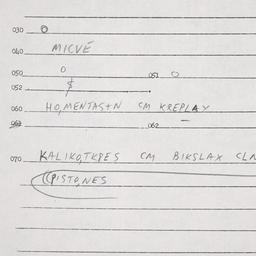 030 0
040 MICVÉ
050 0 051 0
052
060 HO,MENTAS+N CM KREPLAX
062
070 KALIKO,TKPES CM BIKSLAX CLA
((PISTO,NES